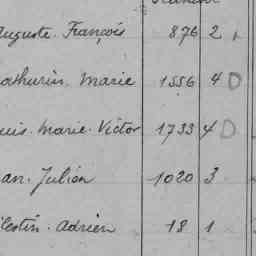 Auguste. François 876 2
Mathurin. Marie 1556 4 D
Louis. Marie. Victor 1733 4 D
Jean. Julien 1020 3
Célestin. Adrien 18 1